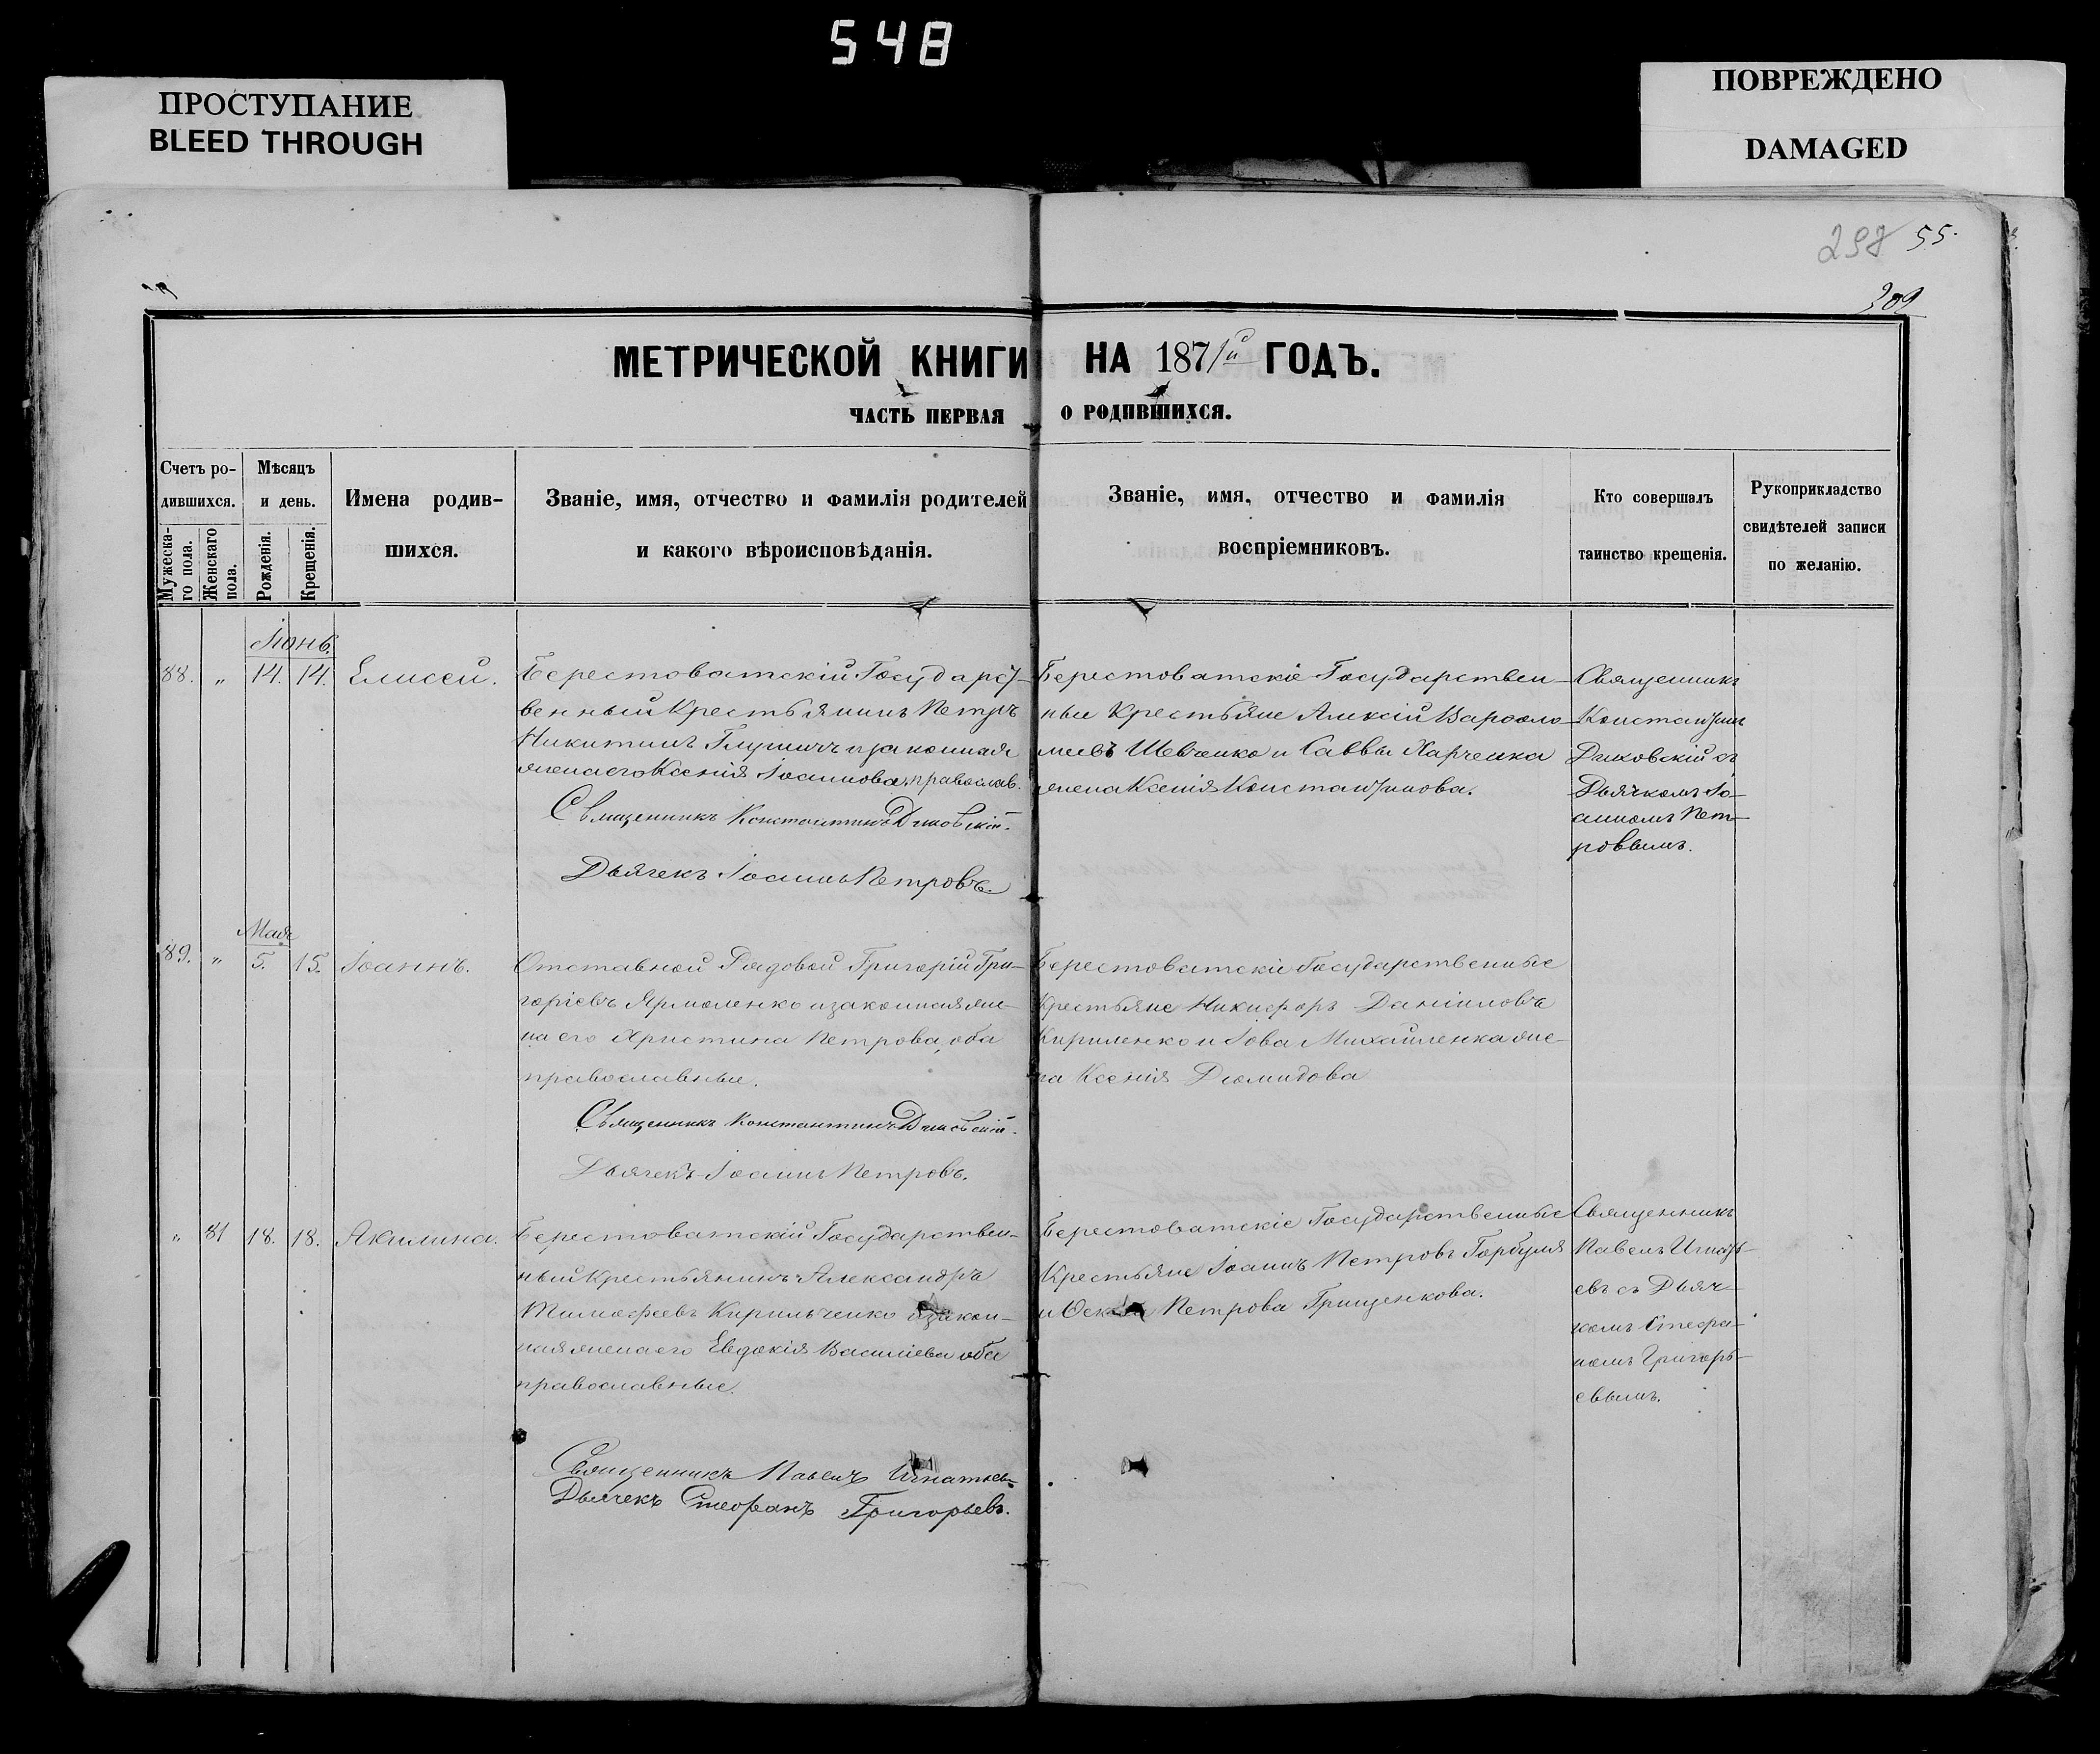 548
ПРОСТУПАНИЕ
BLEED THROUGH
ПОВРЕЖДЕНО
DAMAGED
55.
309
МЕТРИЧЕСКОЙ КНИГИ НА 1871й ГОДЪ.
ЧАСТЬ ПЕРВАЯ О РОДИВШИХСЯ.
Счетъ ро-
дившихся.
Мужеска-
го пола.
Женскаго
пола.
Мѣсяцъ
и день.
Рожденія.
Крещенія.
Имена родив-
шихся.
Званіе, имя, отчество и фамилія родителей
и какого вѣроисповѣданія.
Званіе, имя, отчество и фамилія
воспріемниковъ.
Кто совершалъ
таинство крещенія.
Рукоприкладство
свидѣтелей записи
по желанію.
Іюнь.
88. „ 14. 14. Елисей.
Берестоватскій Государст-
венный Крестьянинъ Петръ
Никитинъ и законная
жена его Ксенія Іоаннова, православ.
Священникъ Константинъ Диковскій.
Дьячекъ Іоаннъ Петровъ.
Берестоватскіе Государствен-
ные Крестьяне Алексій Варѳоло-
меевъ Шевченко и Саввы Харченка
жена Ксенія Константинова.
Священникъ
Константинъ
Диковскій съ
Дьячкомъ Іо-
анномъ Пет-
ровымъ.
Мая
89. „ 5. 15. Іоаннъ.
Отставной Рядовой Григорій Гри-
горіевъ Ярмоленко и законная же-
на его Христина Петрова, оба
православные.
Священникъ Константинъ Диковскій.
Дьячекъ Іоаннъ Петровъ.
Берестоватскіе Государственные
Крестьяне Никифоръ Даніиловъ
Кириленко и Іова Михайленка же-
на Ксенія Диомидова
„ 81 18. 18. Акилина.
Берестоватскій Государствен-
ный Крестьянинъ Александръ
Тимофеевъ Кирильченко и закон-
ная жена его Евдокія Василіева оба
православные.
Священникъ Павелъ Игнатьевъ
Дьячекъ Стефанъ Григорьевъ.
Берестоватскіе Государственные
Крестьяне Іоаннъ Петровъ Горбуля
и Петрова Грищенкова.
Священникъ
Павелъ Игнать-
евъ съ Дьяч-
комъ Стефа-
номъ Григорь-
евымъ.